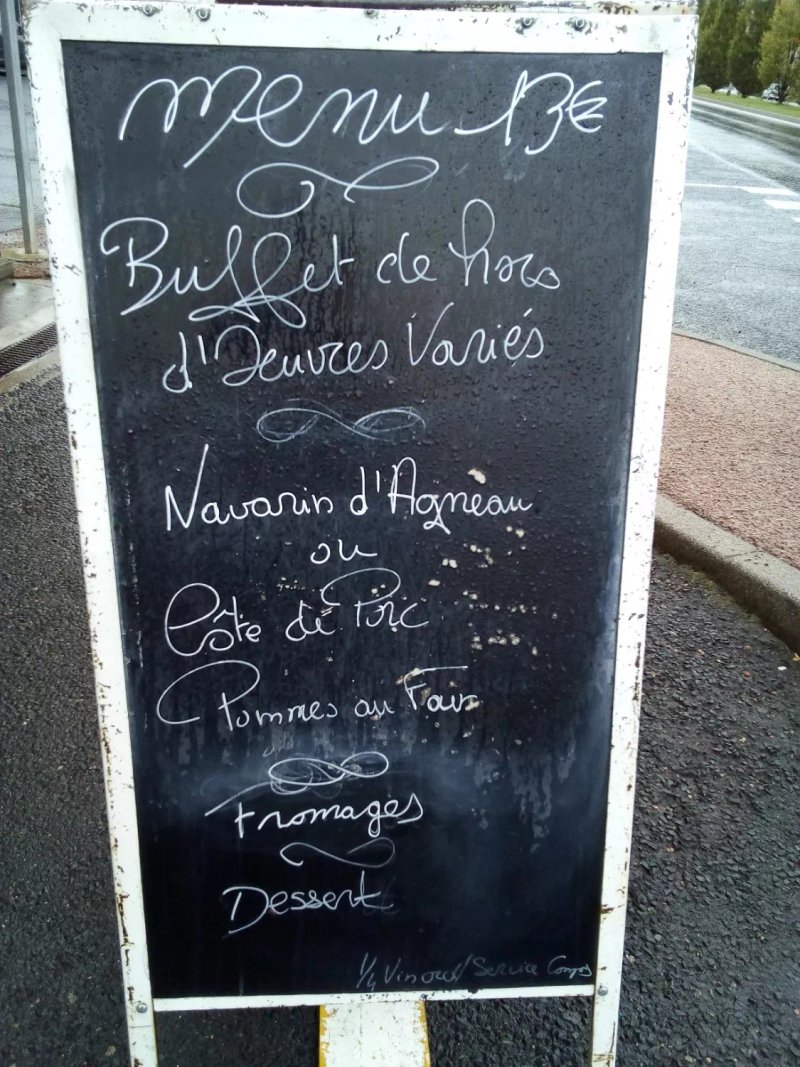 Menu 13€
Buffet de hors
d'Oeuvres Variés
Navarin d'Agneau
ou
Côte de Porc
Pommes au Four
Fromages
Dessert
1/4 Vin Service Compris